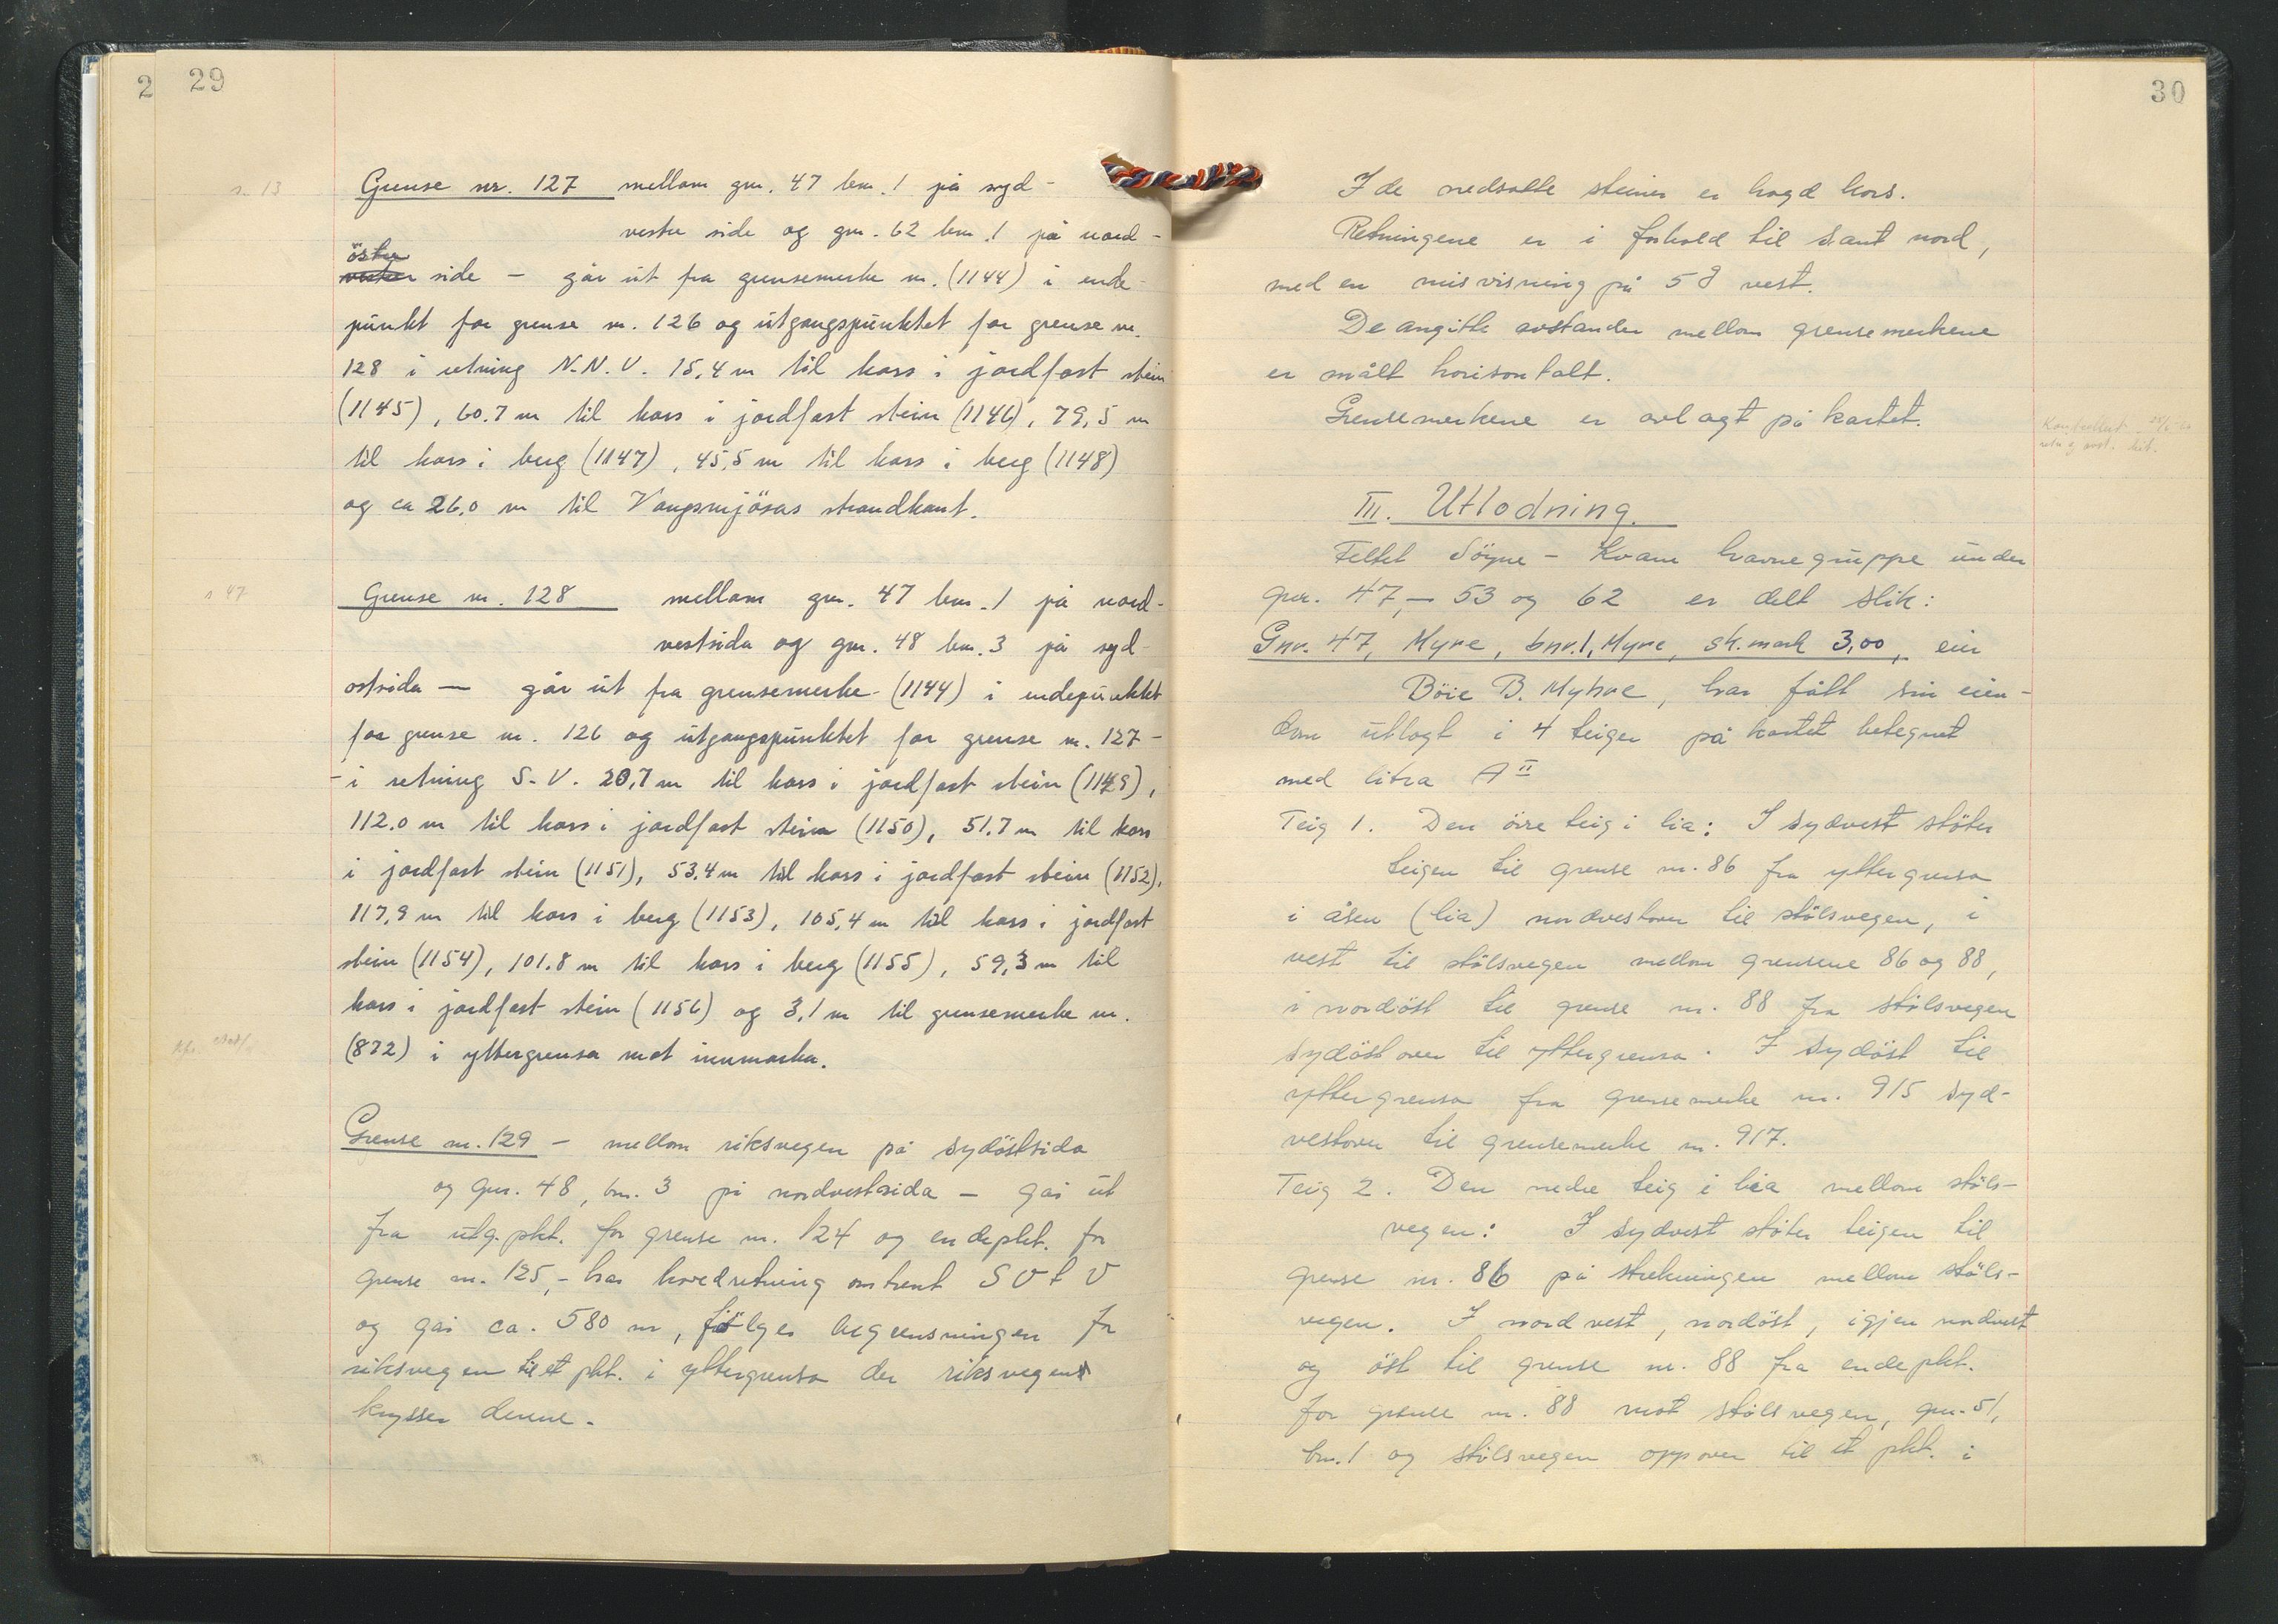 2 29
s. 13
Grense nr. 127 mellom gnr. 47 bnr. 1 på syd-
vestre side og gnr. 62 bnr. 1 på nord-
östre
vestre side – går ut fra grensemerke nr. (1144) i ende-
punkt for grense nr. 126 og utgangspunktet for grense nr.
128 i retning N.N.V. 15,4 m til kors i jordfast stein
(1145), 60.7 m til kors i jordfast stein (1146), 79,5 m
til kors i berg (1147), 45,5 m til kors i berg (1148)
og ca 26,0 m til Vangsmjösas strandkant.
s 47
Grense nr. 128 mellom gnr. 47 bnr. 1 på nord-
vestsida og gnr. 48 bnr. 3 på syd-
ostsida – går ut fra grensemerke (1144) i endepunktet
for grense nr. 126 og utgangspunktet for grense nr. 127 –
– i retning S.V. 20,7 m til kors i jordfast stein (1149),
112.0 m til kors i jordfast stein (1150), 51.7 m til kors
i jordfast stein (1151), 53,4 m til kors i jordfast stein (1152),
117,9 m til kors i berg (1153), 105,4 m til kors i jordfast
stein (1154), 101.8 m til kors i berg (1155), 59,3 m til
kors i jordfast stein (1156) og 3,1 m til grensemerke nr.
(872) i yttergrensa mot innmarka.
Grense nr. 129 – mellom riksvegen på sydöstsida
og gnr. 48, bnr. 3 på nordvestsida – går ut
fra utg.pkt. for grense nr. 124 og endepkt. for
grense nr. 125, – har hovedretning omtrent S V t V
og går ca. 580 m, fölger begrensningen for
riksvegen til et pkt. i yttergrensa der riksvegen
krysser denne.
30
I de nedsatte steiner er hogd kors.
Retningene er i forhold til sant nord,
med en misvisning på 5 g vest.
De angitte avstander mellom grensemerkene
er målt horisontalt.
Grensemerkene er avlagt på kartet.
III. Utlodning.
Feltet Söyne – Kvam havnegruppe under
gnr. 47, – 53 og 62 er delt slik:
Gnr. 47, Myre, bnr. 1, Myre, sk.mark 3,00, eier
Böie B. Myhre, har fått sin eien-
dom utlagt i 4 teiger på kartet betegnet
med litra A II
Teig 1. Den övre teig i lia: I sydvest stöter
teigen til grense nr. 86 fra yttergrensa
i åsen (lia) nordvestover til stölsvegen, i
vest til stölsvegen mellom grensene 86 og 88,
i nordöst til grense nr. 88 fra stölsvegen
sydöstover til yttergrensa. I sydöst til
yttergrensa fra grensemerke nr. 915 syd-
vestover til grensemerke nr. 917.
Teig 2. Den nedre teig i lia mellom stöls-
vegen: I sydvest stöter teigen til
grense nr. 86 på strekningen mellom stöls-
vegen. I nordvest, nordöst, igjen nordvest
og öst til grense nr. 88 fra endepkt.
for grense nr. 88 mot stölsvegen, gnr. 51,
bnr. 1 og stölsvegen oppover til et pkt. i